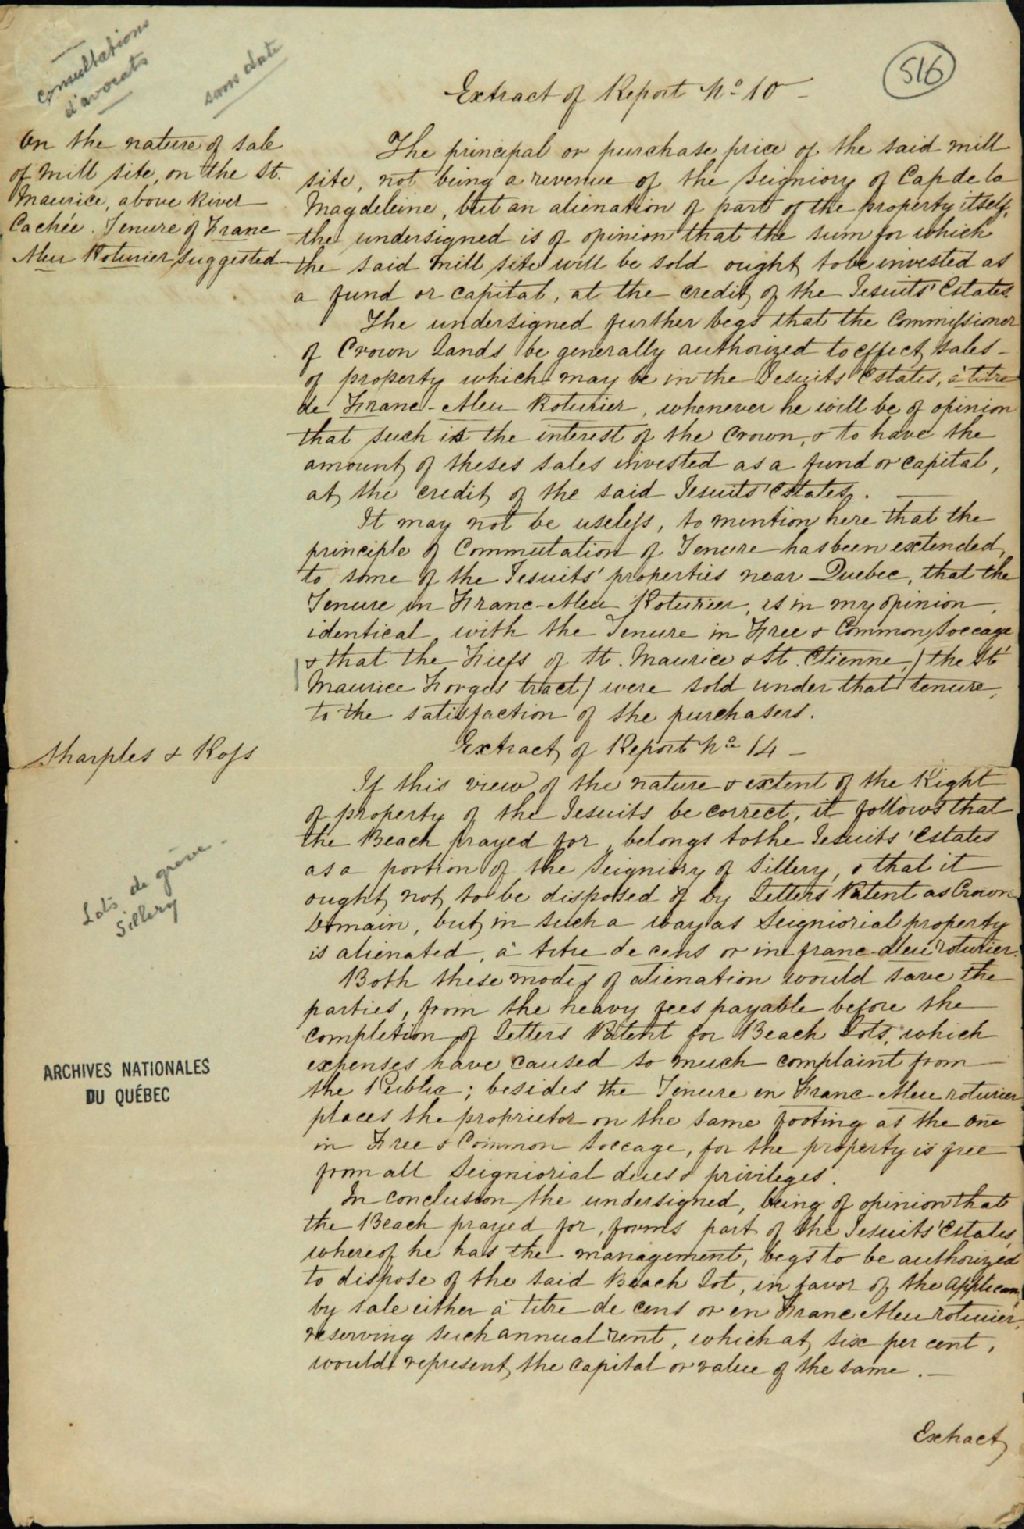 consultations
d'avocats
sans date
516
Extract of Report No 10 -
On the nature of sale
of mill site, on the St.
Maurice, above River
Cachée. Tenure of Franc
Aleu Roturier suggested
The principal or purchase price of the said mill
site, not being a revenue of the Seigniory of Cap de la
Magdeleine, but an alienation of part of the property itself,
the undersigned is of opinion that the sum for which
the said mill site will be sold ought to be invested as
a fund or capital, at the credit of the Jesuits' Estates
The undersigned further begs that the Commissioner
of Crown Lands be generally authorized to effect sales -
of property which may be in the Jesuits Estates, à titre
de Franc-Aleu Roturier, whenever he will be of opinion
that such is the interest of the Crown, & to have the
amount of theses sales invested as a fund or capital,
at the credit of the said Jesuits' Estates.
It may not be useless, to mention here that the
principle of Commutation of Tenure has been extended,
to some of the Jesuits' properties near Quebec, that the
Tenure in Franc-Aleu Roturier, is in my opinion,
identical with the Tenure in Free & Common Soccage
& that the Fiefs of St. Maurice & St. Etienne, (the St
Maurice Forges tract) were sold under that tenure,
to the satisfaction of the purchasers.
Extract of Report No 14 -
Sharples & Ross
If this view of the nature & extent of the Right
of property of the Jesuits be correct, it follows that
the Beach prayed for, belongs to the Jesuits' Estates
as a portion of the Seigniory of Sillery, & that it
ought not to be disposed of by Letters Patent as Crown
Domain, but in such a way as Seigniorial property
is alienated, à titre de cens or in franc-aleu roturier.
Lots de grève -
Sillery
Both these modes of alienation would save the
parties, from the heavy fees payable before the
completion of Letters Patent for Beach Lots, which
expenses have caused so much complaint from
the Public; besides the Tenure en Franc-Aleu roturier
places the proprietor on the same footing as the one
in Free & Common Soccage, for the property is free
from all Seigniorial dues & privileges.
ARCHIVES NATIONALES
DU QUÉBEC
In conclusion the undersigned, being of opinion that
the Beach prayed for, forms part of the Jesuits' Estates,
whereof he has the management, begs to be authorized
to dispose of the said Beach Lot, in favor of the applicant,
by sale either à titre de cens or en Franc Aleu roturier,
reserving such annual rent, which at six per cent,
would represent the capital or value of the same. -
Extract